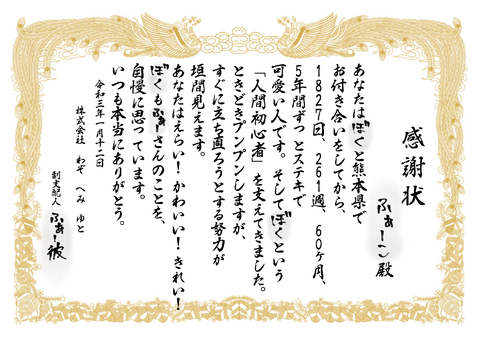 感謝状
ふぁーこ殿
あなたはぼくと熊本県で
お付き合いをしてから、
1827日、261週、60ヶ月、
5年間ずっとステキで
可愛い人です。そしてぼくという
「人間初心者」を支えてきました。
ときどきプンプンしますが、
すぐに立ち直ろうとする努力が
垣間見えます。
あなたはえらい！かわいい！きれい！
ぼくもふぁーさんのことを、
自慢に思っています。
いつも本当にありがとう。
令和三年一月十二日
株式会社 わぞ へみ ゆと
副支配人 ふぁー彼